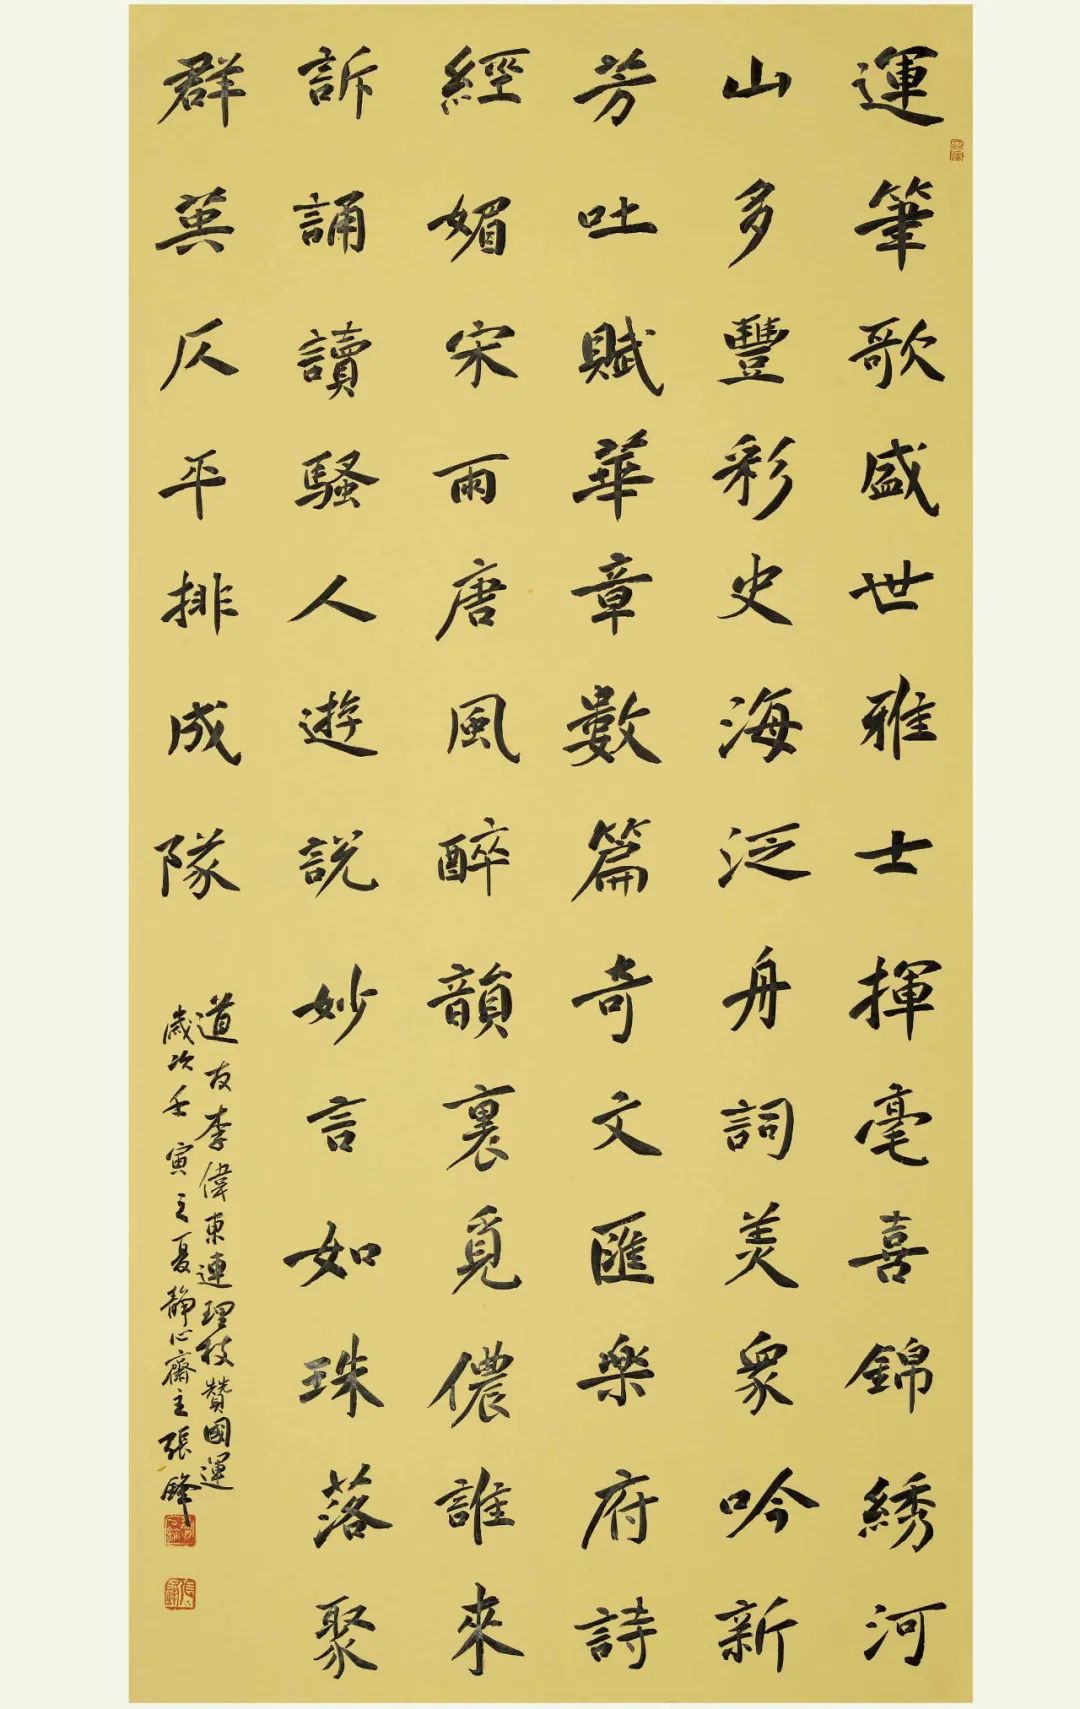 運筆歌盛世雅士揮毫喜錦綉河
山多豐彩史海泛舟詞美衆吟新
芳吐賦華章數篇奇文匯樂府詩
經媚宋雨唐風醉韻裏覓儂誰來
訴誦讀騷人遊説妙言如珠落聚
群英仄平排成隊
道友李偉東連理枝贊國運
歲次壬寅之夏静心齋主張鋒